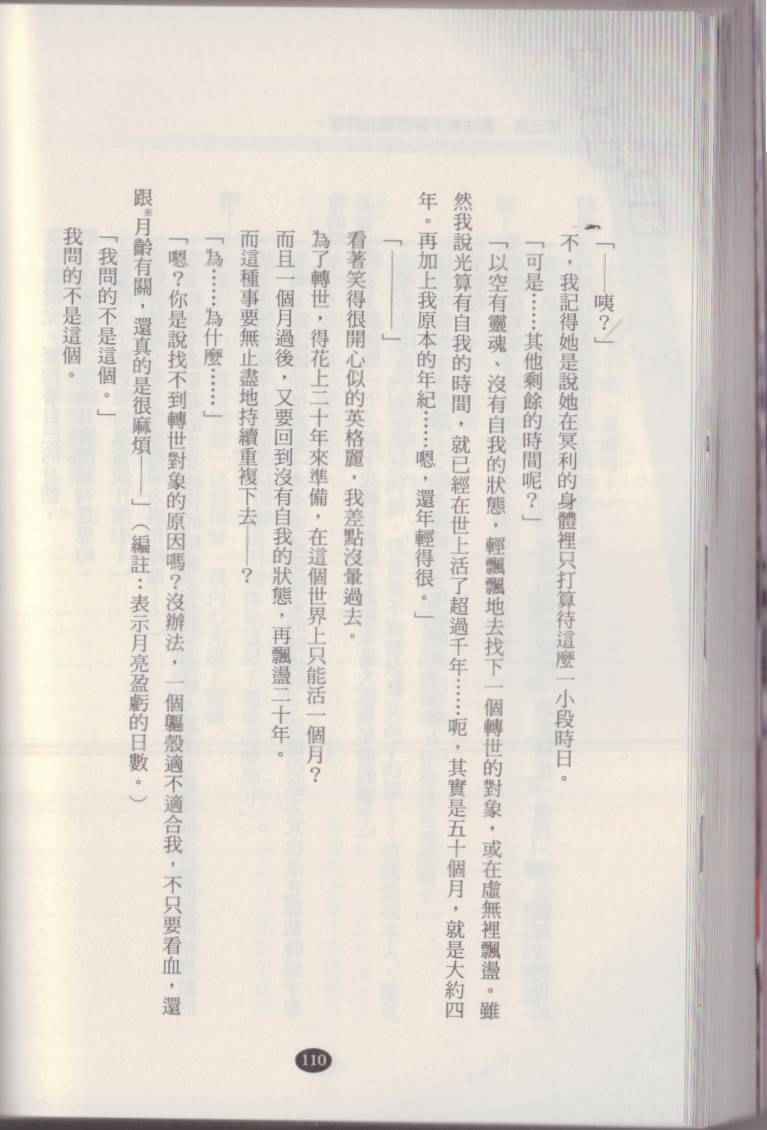 「——咦？」
不，我記得她是說她在冥利的身體裡只打算待這麼一小段時日。
「可是……其他剩餘的時間呢？」
「以空有靈魂、沒有自我的狀態，輕飄飄地去找下一個轉世的對象，或在虛無裡飄盪。雖
然我說光算有自我的時間，就已經在世上活了超過千年……呃，其實是五十個月，就是大約四
年。再加上我原本的年紀……嗯，還年輕得很。」
「————」
看著笑得很開心似的英格麗，我差點沒暈過去。
為了轉世，得花上二十年來準備，在這個世界上只能活一個月？
而且一個月過後，又要回到沒有自我的狀態，再飄盪二十年。
而這種事要無止盡地持續重複下去——？
「為……為什麼……」
「嗯？你是說找不到轉世對象的原因嗎？沒辦法，一個軀殼適不適合我，不只要看血，還
跟※月齡有關，還真的是很麻煩——」（編註：表示月亮盈虧的日數。）
「我問的不是這個。」
我問的不是這個。
110